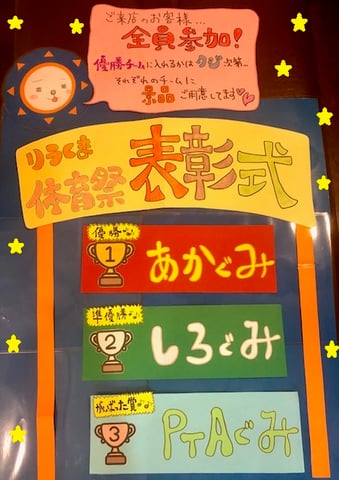 ご来店のお客様...
全員参加!
優勝チームに入れるかはクジ次第...
それぞれのチームに
景品ご用意してます♡♡
りらくま
体育祭
表彰式
優勝♪
1
あかぐみ
準優勝♪
2
しろぐみ
がんばった賞♪♪
3
PTAぐみ